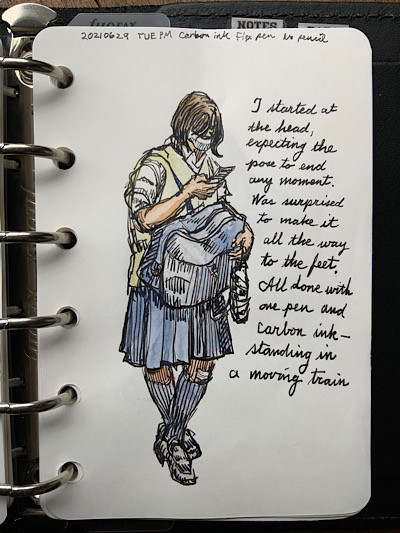 FILOFAX
NOTES
20210629 TUE PM Carbon ink Fine pen No pencil
I started at
the head,
expecting the
pose to end
any moment.
Was surprised
to make it
all the way
to the feet.
All done with
one pen and
Carbon ink—
standing in
a moving train